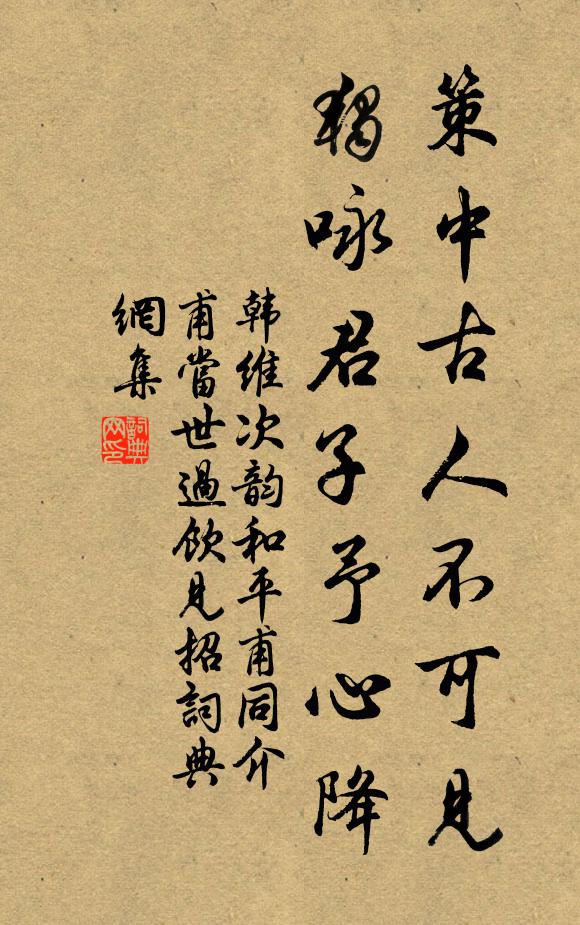 策中古人不可見
獨咏君子予心降
韩維次韵和平甫同介
甫當世過飲見招詞典
網集
詞典
网印